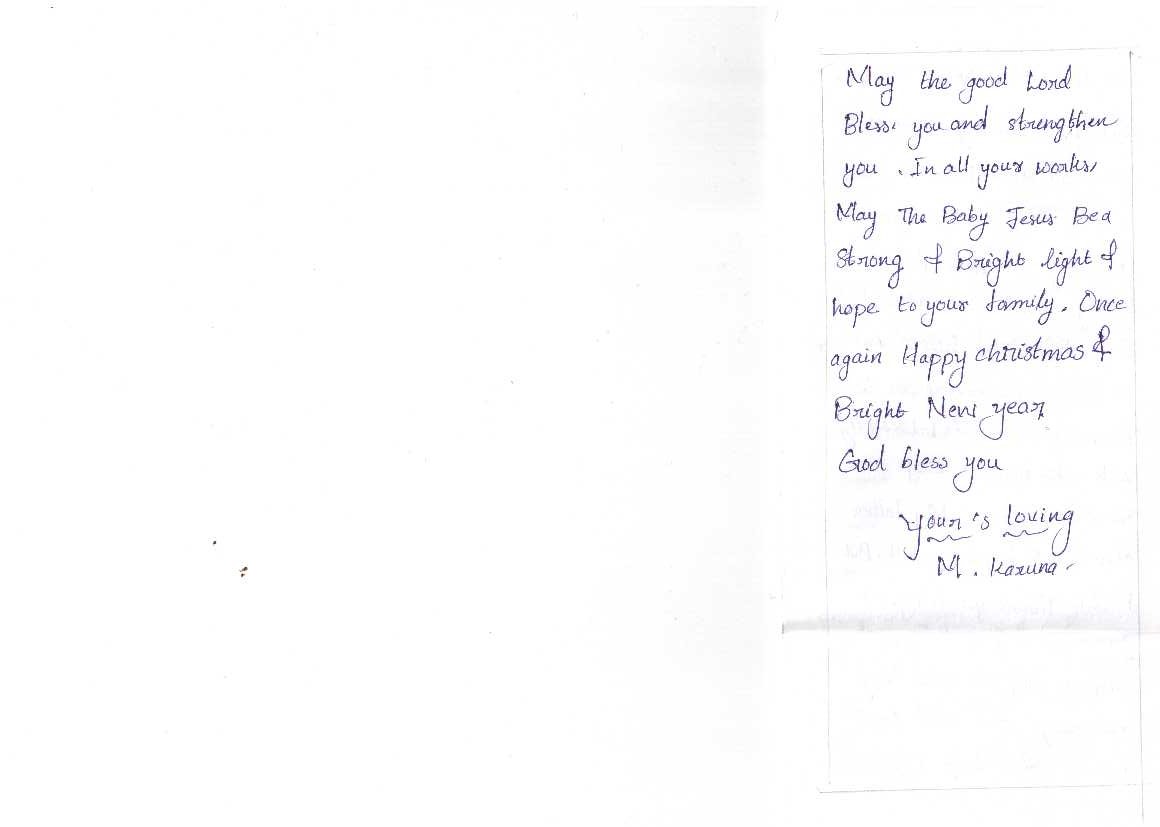 May the good Lord
Bless you and strengthen
you . In all your works,
May The Baby Jesus Be a
Strong & Bright light &
hope to your family. Once
again Happy christmas &
Bright New year
God bless you
Your's loving
M. Karuna